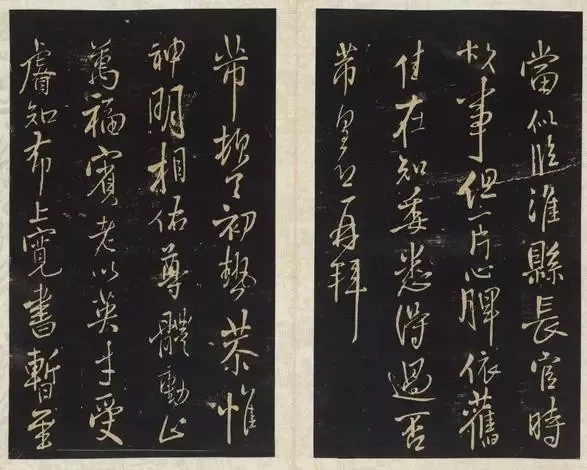 當似臨淮縣長官時
故事但一片心脾依舊
佳在知委悉得過否
芾皇恐再拜
芾頓首初熱恭惟
神明相佑尊體動止
萬福賓老以英才受
睿知布上寬書暫至